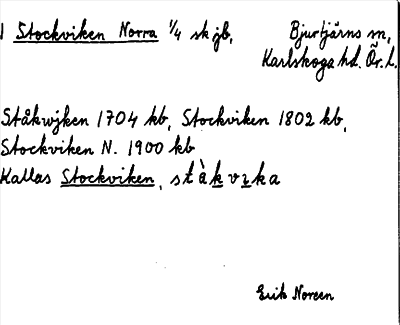 Stockviken Norra 1/4 sk jb, Bjurtjärns sn,
Karlskoga hd. Ör. l.
Ståkwjken 1704 kb, Stockviken 1802 kb,
Stockviken N. 1900 kb
Kallas Stockviken, stàkvıka
Erik Noreen